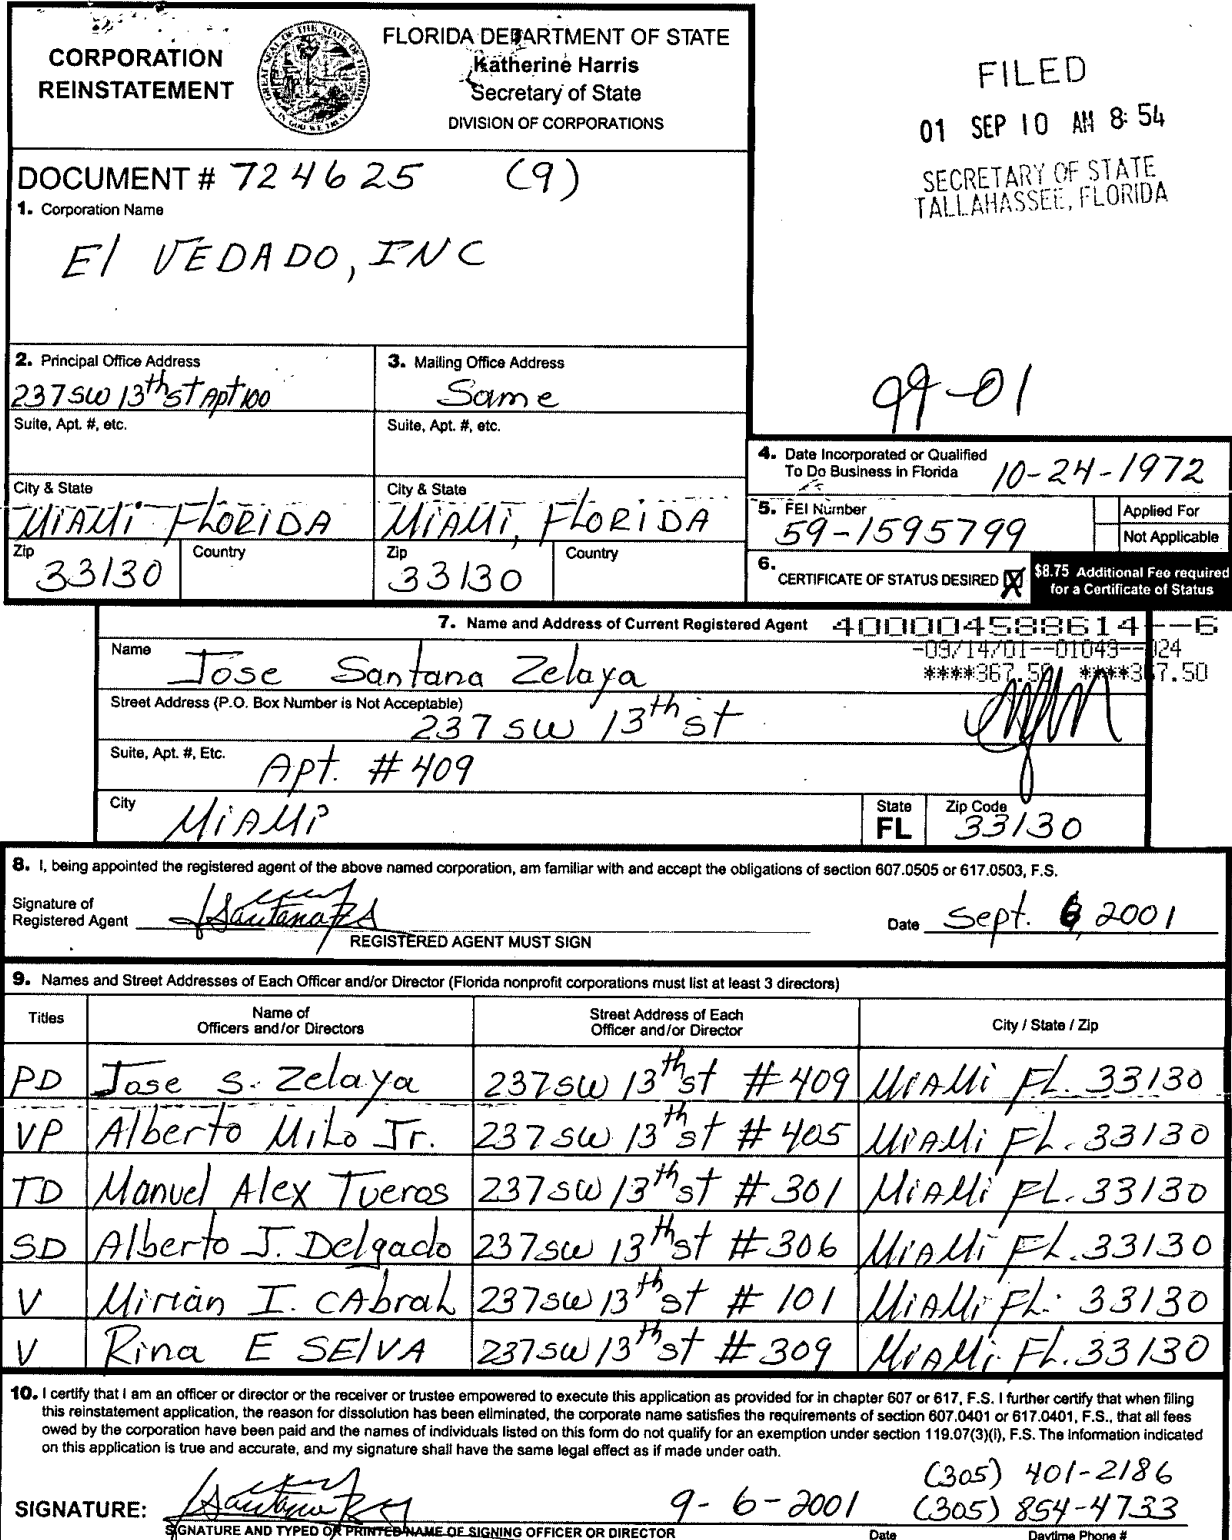 CORPORATION
REINSTATEMENT
GREAT SEAL OF THE STATE OF FLORIDA
IN GOD WE TRUST
FLORIDA DEPARTMENT OF STATE
Katherine Harris
Secretary of State
DIVISION OF CORPORATIONS
FILED
01 SEP 10 AM 8:54
SECRETARY OF STATE
TALLAHASSEE, FLORIDA
DOCUMENT # 724625 (9)
1. Corporation Name
El VEDADO, INC
2. Principal Office Address
237 SW 13th st Apt 100
3. Mailing Office Address
Same
99-01
Suite, Apt. #, etc.
Suite, Apt. #, etc.
4. Date Incorporated or Qualified
To Do Business in Florida 10-24-1972
City & State
MiAMi FLORiDA
City & State
MiAMi, FLORiDA
5. FEI Number
59-1595799
Applied For
Not Applicable
Zip
33130
Country
Zip
33130
Country
6. CERTIFICATE OF STATUS DESIRED X
$8.75 Additional Fee required
for a Certificate of Status
7. Name and Address of Current Registered Agent
400004588614--6
-09/14/01--01049--024
****367.50 ****367.50
Name
Jose Santana Zelaya
Street Address (P.O. Box Number is Not Acceptable)
237 SW 13th st
Suite, Apt. #, Etc.
Apt. #409
City
MiAMi
State
FL
Zip Code
33130
8. I, being appointed the registered agent of the above named corporation, am familiar with and accept the obligations of section 607.0505 or 617.0503, F.S.
Signature of
Registered Agent
REGISTERED AGENT MUST SIGN
Date Sept. 6, 2001
9. Names and Street Addresses of Each Officer and/or Director (Florida nonprofit corporations must list at least 3 directors)
Titles
Name of
Officers and/or Directors
Street Address of Each
Officer and/or Director
City / State / Zip
PD Jose S. Zelaya 237 SW 13th st #409 MiAMi FL. 33130
VP Alberto Milo Jr. 237 SW 13th st #405 MiAMi FL. 33130
TD Manuel Alex Tueros 237 SW 13th st #301 MiAMi FL. 33130
SD Alberto J. Delgado 237 SW 13th st #306 MiAMi FL. 33130
V Mirian I. CAbraL 237 SW 13th st #101 MiAMi FL. 33130
V Rina E SElVA 237 SW 13th st #309 MiAMi FL. 33130
10. I certify that I am an officer or director or the receiver or trustee empowered to execute this application as provided for in chapter 607 or 617, F.S. I further certify that when filing
this reinstatement application, the reason for dissolution has been eliminated, the corporate name satisfies the requirements of section 607.0401 or 617.0401, F.S., that all fees
owed by the corporation have been paid and the names of individuals listed on this form do not qualify for an exemption under section 119.07(3)(i), F.S. The information indicated
on this application is true and accurate, and my signature shall have the same legal effect as if made under oath.
(305) 401-2186
SIGNATURE: 9-6-2001 (305) 854-4733
SIGNATURE AND TYPED OR PRINTED NAME OF SIGNING OFFICER OR DIRECTOR
Date
Daytime Phone #